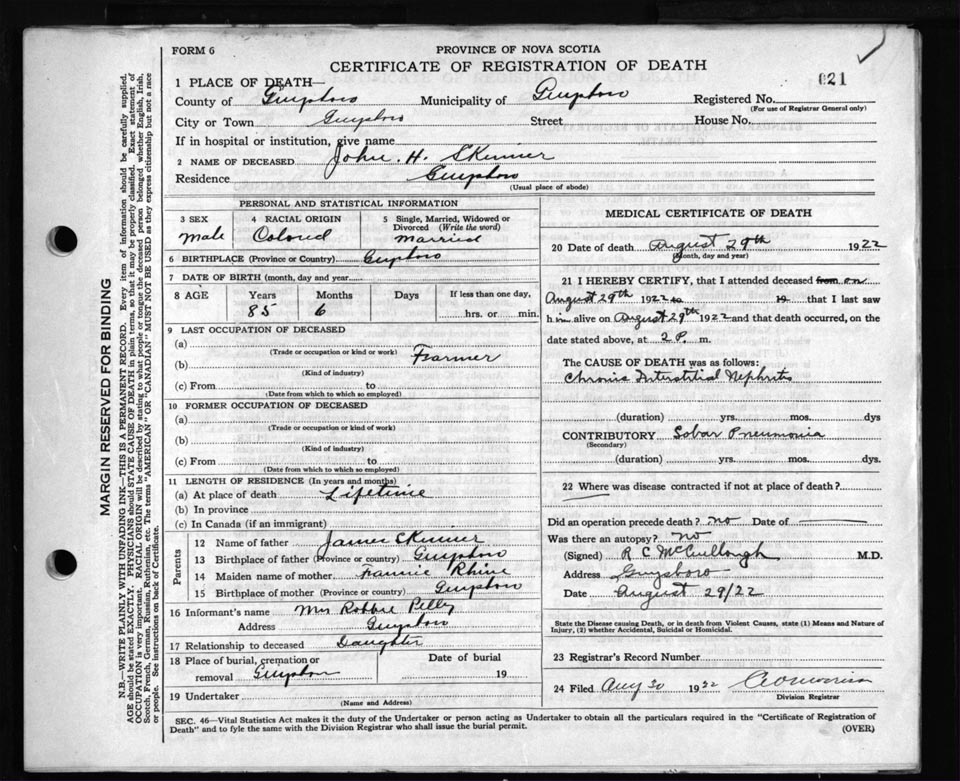 FORM 6
PROVINCE OF NOVA SCOTIA
CERTIFICATE OF REGISTRATION OF DEATH
021
1 PLACE OF DEATH—
County of Guysboro Municipality of Guysboro Registered No.
(For use of Registrar General only)
City or Town Guysboro Street House No.
If in hospital or institution, give name
2 NAME OF DECEASED John. H. Skinner
Residence Guysboro
(Usual place of abode)
PERSONAL AND STATISTICAL INFORMATION
3 SEX 4 RACIAL ORIGIN 5 Single, Married, Widowed or
Divorced (Write the word)
Male Colored Married
6 BIRTHPLACE (Province or Country) Guysboro
7 DATE OF BIRTH (month, day and year)
8 AGE Years Months Days If less than one day,
85 6 hrs. or min.
9 LAST OCCUPATION OF DECEASED
(a)
(Trade or occupation or kind or work)
(b) Farmer
(Kind of industry)
(c) From to
(Date from which to which so employed)
10 FORMER OCCUPATION OF DECEASED
(a)
(Trade or occupation or kind or work)
(b)
(Kind of industry)
(c) From to
(Date from which to which so employed)
11 LENGTH OF RESIDENCE (In years and months)
(a) At place of death Lifetime
(b) In province
(c) In Canada (if an immigrant)
Parents
12 Name of father James Skinner
13 Birthplace of father (Province or country) Guysboro
14 Maiden name of mother Fannie Rhine
15 Birthplace of mother (Province or Country) Guysboro
16 Informant's name Mrs Robbie Pelly
Address Guysboro
17 Relationship to deceased Daughter
18 Place of burial, cremation or Date of burial
removal Guysboro 19
19 Undertaker
(Name and Address)
MEDICAL CERTIFICATE OF DEATH
20 Date of death August 29th 1922
(Month, day and year)
21 I HEREBY CERTIFY, that I attended deceased from on
August 29th 1922 to 19 that I last saw
him alive on August 29th 1922 and that death occurred, on the
date stated above, at 2 P. m.
The CAUSE OF DEATH was as follows:
Chronic Interstitial Nephritis
(duration) yrs. mos. dys
CONTRIBUTORY Lobar Pneumonia
(Secondary)
(duration) yrs. mos. dys.
22 Where was disease contracted if not at place of death?
Did an operation precede death? no Date of
Was there an autopsy? no
(Signed) R C McCullough M.D.
Address Guysboro
Date August 29/22
State the Disease causing Death, or in death from Violent Causes, state (1) Means and Nature of
Injury, (2) whether Accidental, Suicidal or Homicidal.
23 Registrar's Record Number
24 Filed Aug 30 1922
Division Registrar
SEC. 46—Vital Statistics Act makes it the duty of the Undertaker or person acting as Undertaker to obtain all the particulars required in the "Certificate of Registration of
Death" and to fyle the same with the Division Registrar who shall issue the burial permit.
(OVER)
MARGIN RESERVED FOR BINDING
N.B.—WRITE PLAINLY WITH UNFADING INK—THIS IS A PERMANENT RECORD. Every item of information should be carefully supplied.
AGE should be stated EXACTLY. PHYSICIANS should STATE CAUSE OF DEATH in plain terms, so that it may be properly classified. Exact statement of
OCCUPATION is very important. RACIAL ORIGIN will be described by stating to what people or tongue the deceased person belonged whether English, Irish,
Scotch, French, German, Russian, Ruthenian, etc. The terms "AMERICAN" OR "CANADIAN" MUST NOT BE USED as they express citizenship but not a race
or people. See instructions on back of Certificate.